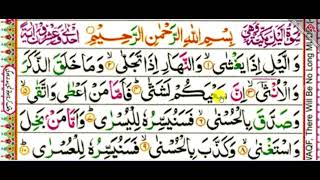 بِسْمِ اللهِ الرَّحْمٰنِ الرَّحِيْمِ
وَ الَّيْلِ اِذَا يَغْشٰى ۙ‏ وَ النَّهَارِ اِذَا تَجَلّٰى ۙ‏ وَ مَا خَلَقَ الذَّكَرَ
وَ الْاُنْثٰٓى ۙ‏ اِنَّ سَعْيَكُمْ لَشَتّٰى ؕ‏ فَاَمَّا مَنْ اَعْطٰى وَ اتَّقٰى ۙ‏
وَ صَدَّقَ بِالْحُسْنٰى ۙ‏ فَسَنُيَسِّرُهٗ لِلْيُسْرٰى ؕ‏ وَ اَمَّا مَنْۢ بَخِلَ
وَ اسْتَغْنٰى ۙ‏ وَ كَذَّبَ بِالْحُسْنٰى ۙ‏ فَسَنُيَسِّرُهٗ
WAQF. There Will Be No Long